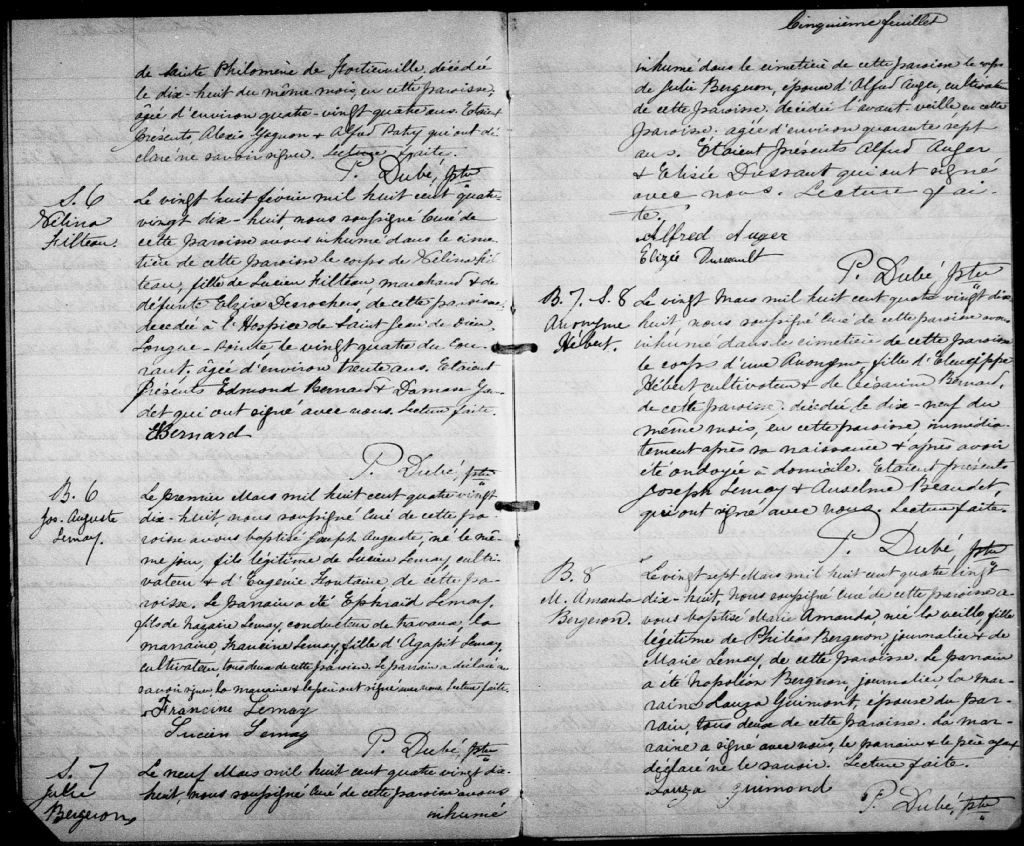 de Sainte Philomène de Fortierville, décédée
le dix-huit du même mois, en cette paroisse,
âgée d'environ quatre-vingt quatre ans. Etaient
présents, Alexis Gagnon & Alfred Paty qui ont dé-
claré ne savoir signer. Lecture faite.
P. Dubé, ptre
S. 6
Délina
Filteau.
Le vingt huit février mil huit cent quatre
vingt dix-huit, nous soussigné Curé de
cette paroisse avons inhumé dans le cime-
tière de cette paroisse le corps de Délina Fil-
teau, fille de Lucien Filteau, marchand & de
défunte Elzire Desrochers, de cette paroisse,
décédée à l'Hospice de Saint Jean de Dieu,
Longue-Pointe, le vingt quatre du Cou-
rant, âgée d'environ trente ans. Etaient
présents Edmond Bernard & Damase Gau-
det qui ont signé avec nous. Lecture faite.
EBernard
P. Dubé, ptre
B. 6
Jos. Auguste
Lemay.
Le premier Mars mil huit cent quatre vingt
dix-huit, nous soussigné Curé de cette pa-
roisse avons baptisé Joseph Auguste, né le mê-
me jour, fils légitime de Lucien Lemay, culti-
vateur & d'Eugénie Fontaine, de cette pa-
roisse. Le parrain a été Ephraïd Lemay,
fils de Nazaire Lemay, conducteur de travaux, la
marraine, Francine Lemay, fille d'Agapit Lemay,
cultivateur, tous deux de cette paroisse. Le parrain a déclaré ne
savoir signer, la marraine & le père ont signé avec nous. Lecture faite.
Francine Lemay
Lucien Lemay
P. Dubé, ptre
S. 7
Julie
Bergeron
Le neuf Mars mil huit cent quatre vingt dix-
huit, nous soussigné Curé de cette paroisse avons
inhumé
Cinquième feuillet
inhumé dans le cimetière de cette paroisse le corps
de Julie Bergeron, épouse d'Alfred Auger, cultivateur
de cette paroisse, décédée l'avant-veille en cette
paroisse, agée d'environ quarante sept
ans. Etaient présents Alfred Auger
& Elisée Dussault qui ont signé
avec nous. Lecture fai-
te.
Alfred Auger
Elizée Dussault
P. Dubé, ptre
B. 7. S. 8
Anonyme
Hébert.
Le vingt Mars mil huit cent quatre vingt dix
huit, nous soussigné Curé de cette paroisse avons
inhumé dans le cimetière de cette paroisse
le corps d'une Anonyme, fille d'Eleusippe
Hébert cultivateur & de Césarine Bernard,
de cette paroisse, décédée le dix-neuf du
même mois, en cette paroisse immédia-
tement après sa naissance & après avoir
été ondoyée à domicile. Etaient présents
Joseph Lemay & Anselme Beaudet,
qui ont signé avec nous. Lecture faite.
P. Dubé, ptre
B. 8
M. Amanda
Bergeron.
Le vingt sept Mars mil huit cent quatre vingt
dix-huit, Nous soussigné curé de cette paroisse a-
vons baptisé Marie Amanda, née la veille, fille
légitime de Philéas Bergeron, journalier & de
Marie Lemay, de cette paroisse. Le parrain
a été Napoléon Bergeron, journalier, la mar-
raine Lauza Guimont, épouse du par-
rain, tous deux de cette paroisse. La mar-
raine a signé avec nous, le parrain & le père ayant
déclaré ne le savoir. Lecture faite.
Lauza guimond
P. Dubé, ptre